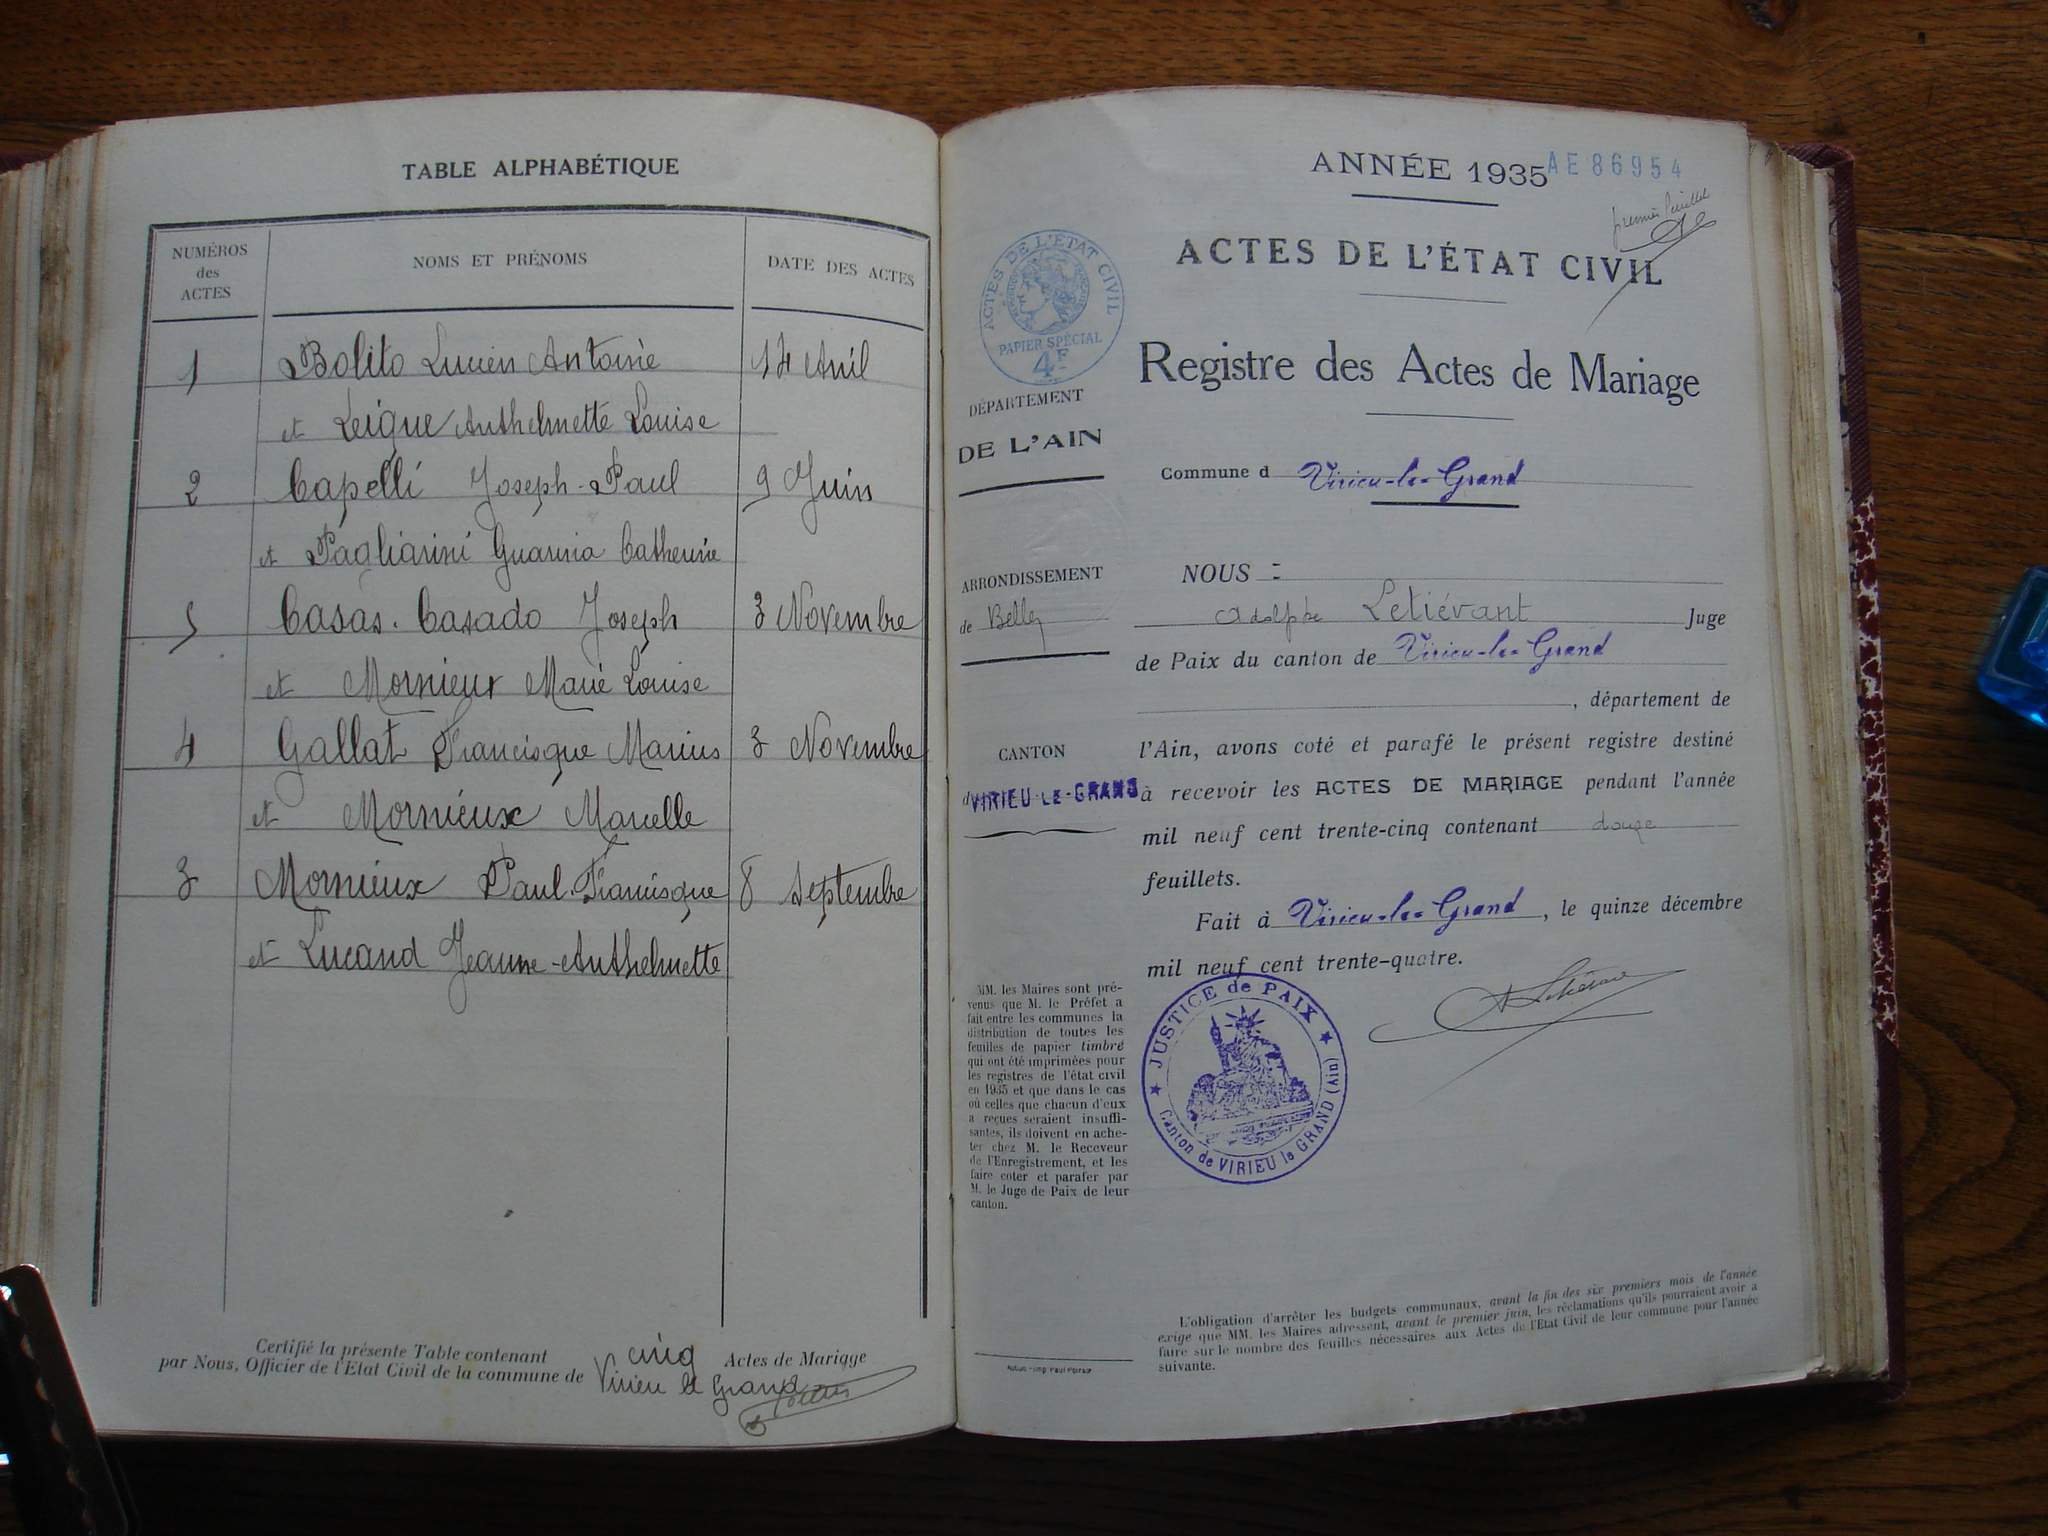 TABLE ALPHABÉTIQUE
NUMÉROS
des
ACTES
NOMS ET PRÉNOMS
DATE DES ACTES
1 Bolito Lucien Antoine 14 Avril
et Leigue Anthelmette Louise
2 Capelli Joseph-Paul 9 Juin
et Pagliarini Catherine
5 Casas-Casado Joseph 3 Novembre
et Mornieux Marie Louise
4 Gallat Francisque Marius 3 Novembre
et Mornieux Marcelle
3 Mornieux Paul-Francisque 8 Septembre
et Lucand Jeanne-Anthelmette
Certifié la présente Table contenant cinq Actes de Mariage
par Nous, Officier de l'Etat Civil de la commune de Virieu le Grand
ANNÉE 1935
AE 86954
premier feuillet
ACTES DE L'ÉTAT CIVIL
PAPIER SPÉCIAL
4F
ACTES DE L'ÉTAT CIVIL
Registre des Actes de Mariage
DÉPARTEMENT
DE L'AIN
Commune d Virieu-le-Grand
ARRONDISSEMENT
de Belley
CANTON
d VIRIEU-LE-GRAND
NOUS :
Adolphe Letiévant Juge
de Paix du canton de Virieu-le-Grand
, département de
l'Ain, avons coté et parafé le présent registre destiné
à recevoir les ACTES DE MARIAGE pendant l'année
mil neuf cent trente-cinq contenant douze
feuillets.
Fait à Virieu-le-Grand, le quinze décembre
mil neuf cent trente-quatre.
A Letiévant
JUSTICE de PAIX
Canton de VIRIEU le GRAND (Ain)
MM. les Maires sont pré-
venus que M. le Préfet a
fait entre les communes la
distribution de toutes les
feuilles de papier timbré
qui ont été imprimées pour
les registres de l'état civil
en 1935 et que dans le cas
où celles que chacun d'eux
a reçues seraient insuffi-
santes, ils doivent en ache-
ter chez M. le Receveur
de l'Enregistrement, et les
faire coter et parafer par
M. le Juge de Paix de leur
canton.
L'obligation d'arrêter les budgets communaux, avant la fin des six premiers mois de l'année
exige que MM. les Maires adressent, avant le premier juin, les réclamations qu'ils pourraient avoir à
faire sur le nombre des feuilles nécessaires aux Actes de l'Etat Civil de leur commune pour l'année
suivante.